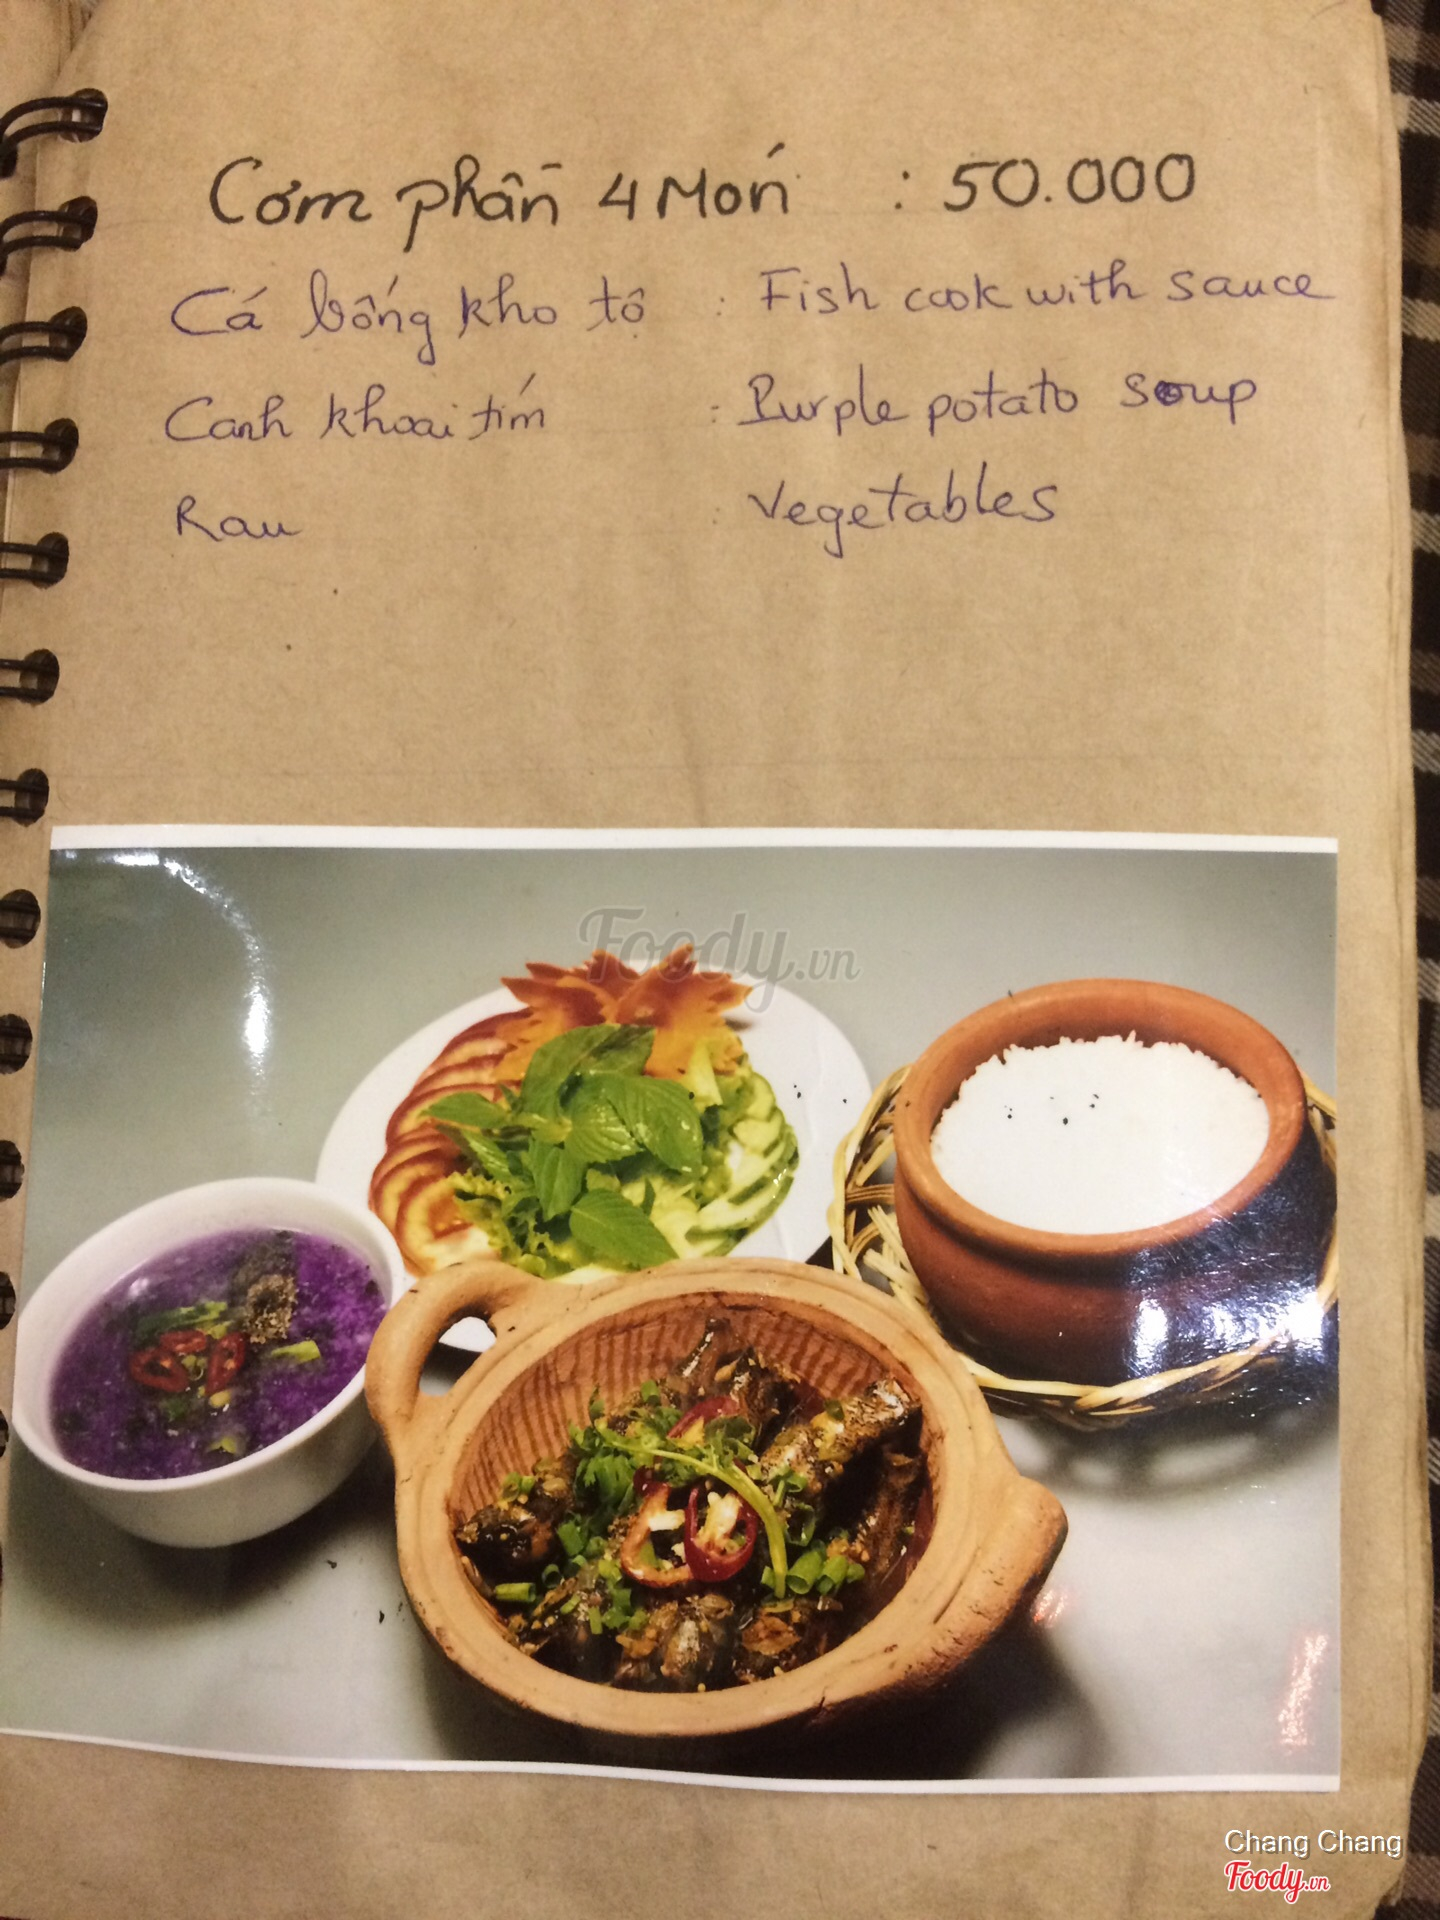 Cơm phần 4 Món : 50.000
Cá bống kho tộ : Fish cook with sauce
Canh khoai tím : Purple potato soup
Rau : Vegetables
Foody.vn
Chang Chang
Foody.vn